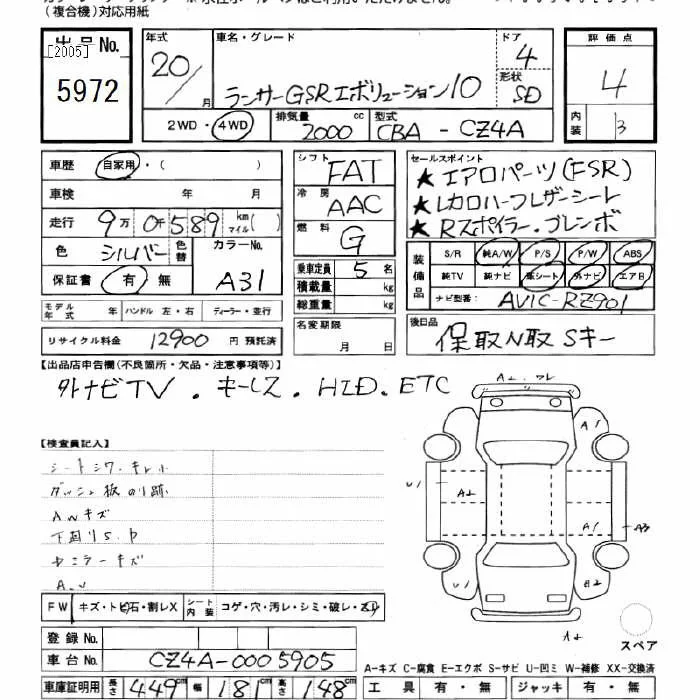 (複合機)対応用紙
出品No.
[2005]
5972
年式
20/
月
車名・グレード
ランサーGSRエボリューション10
ドア
4
形状
SD
評価点
4
内装
B
2WD・4WD
排気量
2000
cc
型式
CBA - CZ4A
車歴
自家用・( )
車検 年 月
走行
9万0千589
km
マイル
( )
色
シルバー
色替
カラーNo.
A31
保証書 有・無
シフト
FAT
冷房
AAC
燃料
G
乗車定員 5 名
積載量 kg
総重量 kg
セールスポイント
★ エアロパーツ(FSR)
★ レカロハーフレザーシート
★ Rスポイラー.ブレンボ
装備品
S/R 純A/W P/S P/W ABS
純TV 純ナビ 革シート 外ナビ エアB
ナビ型番: AVIC-RZ901
モデル年式 年 ハンドル 左・右 ディーラー・並行
リサイクル料金 12900 円 預託済
名変期限
月 日
後日品
保取N取 Sキー
【出品店申告欄(不良箇所・欠品・注意事項等)】
外ナビTV . キーレス . HID . ETC
【検査員記入】
シートシワ・キレ小
ダッシュ板のり跡
AWキズ
ドミラーキズ
FW キズ・トビ石・割レX
シート内装 コゲ・穴・汚レ・シミ・破レ・スレ
登録 No.
車台 No. CZ4A-0005905
車庫証明用 長さ 449 cm 幅 181 cm 高さ 148 cm
A1
U1
A2
A1
A3
U1
B2
A2
スペア
A-キズ C-腐食 E-エクボ S-サビ U-凹ミ W-補修 XX-交換済
工具 有・無 ジャッキ 有・無